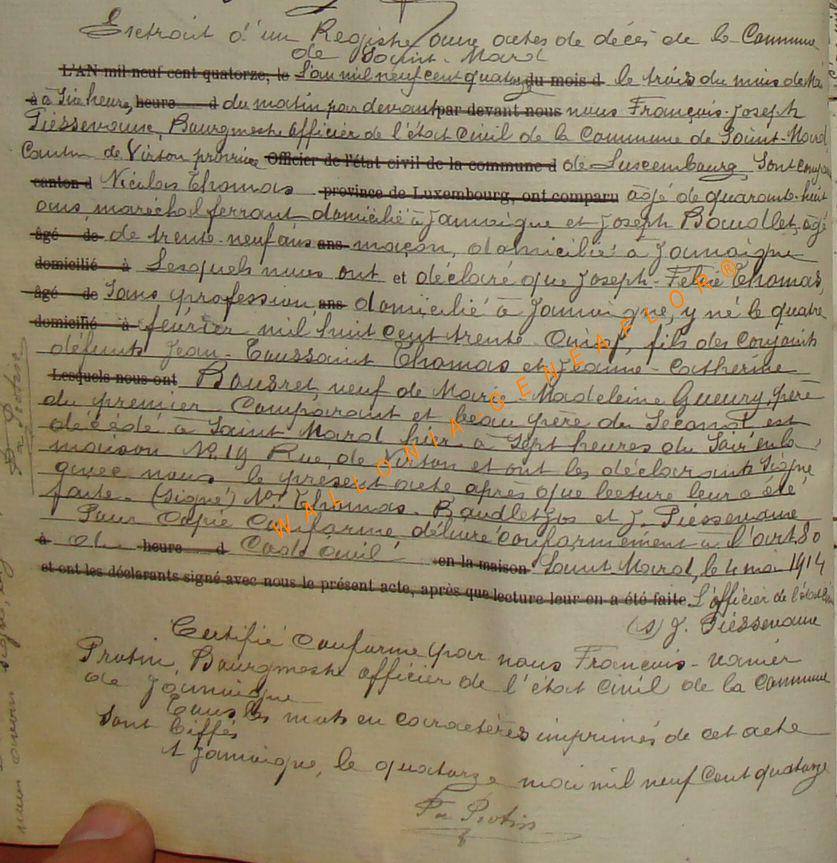 Extrait d'un Registre aux actes de décès de la Commune
de Saint-Mard
L'AN mil neuf cent quatorze, le L'an mil neuf cent quatorze du mois d le trois du mois de Mai
à à Six heures, heure d du matin par devant par devant nous nous François-Joseph
Piessevaux, Bourgmestre officier de l'état civil de la Commune de Saint-Mard
Canton de Virton province Officier de l'état civil de la commune d de Luxembourg, Sont comparu
canton d Nicolas Thomas province de Luxembourg, ont comparu âgé de quarante-huit
ans, maréchal ferrant domicilié à Jamoigne et Joseph Baudlet, âgé
âgé de de trente-neuf ans ans maçon, domicilié à Jamoigne
domicilié à Lesquels nous ont et déclaré que Joseph-Felix Thomas,
âgé de Sans profession, ans domicilié à Jamoigne, y né le quatre
domicilié à février mil huit cent trente, fils des conjoints
défunts Jean-Toussaint Thomas et Jeanne-Catherine
Lesquels nous ont Bausret, veuf de Marie Madeleine Gueury, père
du premier Comparant et beau père du Second est
décédé à Saint Mard hier à Sept heures du Soir en la
maison N° 19 Rue de Virton et ont les déclarants Signé
avec nous le présent acte après que lecture leur a été
faite. (Signé) Nas Thomas. Baudlet Jos et J. Piessevaux
Pour Copie Conforme délivré conformément à l'art 80
à heure d Code civil en la maison Saint Mard, le 4 mai 1914
et ont les déclarants signé avec nous le présent acte, après que lecture leur en a été faite. L'officier de l'état civil
(s) J. Piessevaux
Certifié Conforme par nous François-Xavier
Protin, Bourgmestre officier de l'état civil de la Commune
de Jamoigne
Tous les mots en caractères imprimés de cet acte
sont biffés
A Jamoigne, le quatorze mai mil neuf Cent quatorze
Fx Protin
Fx Protin
WALLONIA-GENEAFLOR®